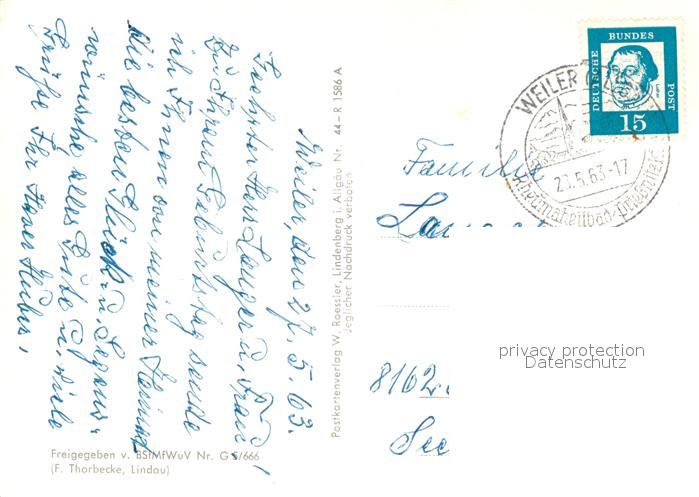 Weiler, den 27. 5. 63.
Geehrter Herr Langer u. Frau!
Zu Ihrem Geburtstag sende
ich Ihnen von meiner Heimat
die besten Glück u. Segens-
wünsche alles Gute u. viele
Grüße Ihr Xaver Huber.
Freigegeben v. BStMfWuV Nr. G 5/666
(F. Thorbecke, Lindau)
Postkartenverlag W. Roessler, Lindenberg i. Allgäu Nr. 44 - R 1586 A
Jeglicher Nachdruck verboten
DEUTSCHE
BUNDES
POST
15
WEILER
-5.63-17
Familie
8162
See
privacy protection
Datenschutz